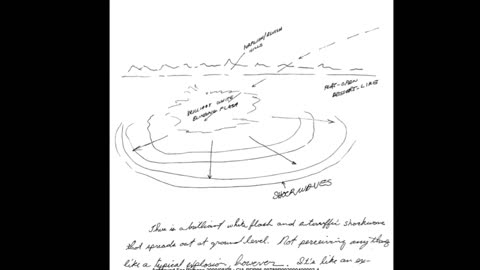 HILLS
FLAT-OPEN
DESERT-LIKE
BRILLIANT WHITE
BLINDING FLASH
SHOCKWAVES
This is a brilliant white flash and a terrific shockwave
that spreads out at ground level. Not perceiving anything
like a typical explosion, however. It's like an ex-